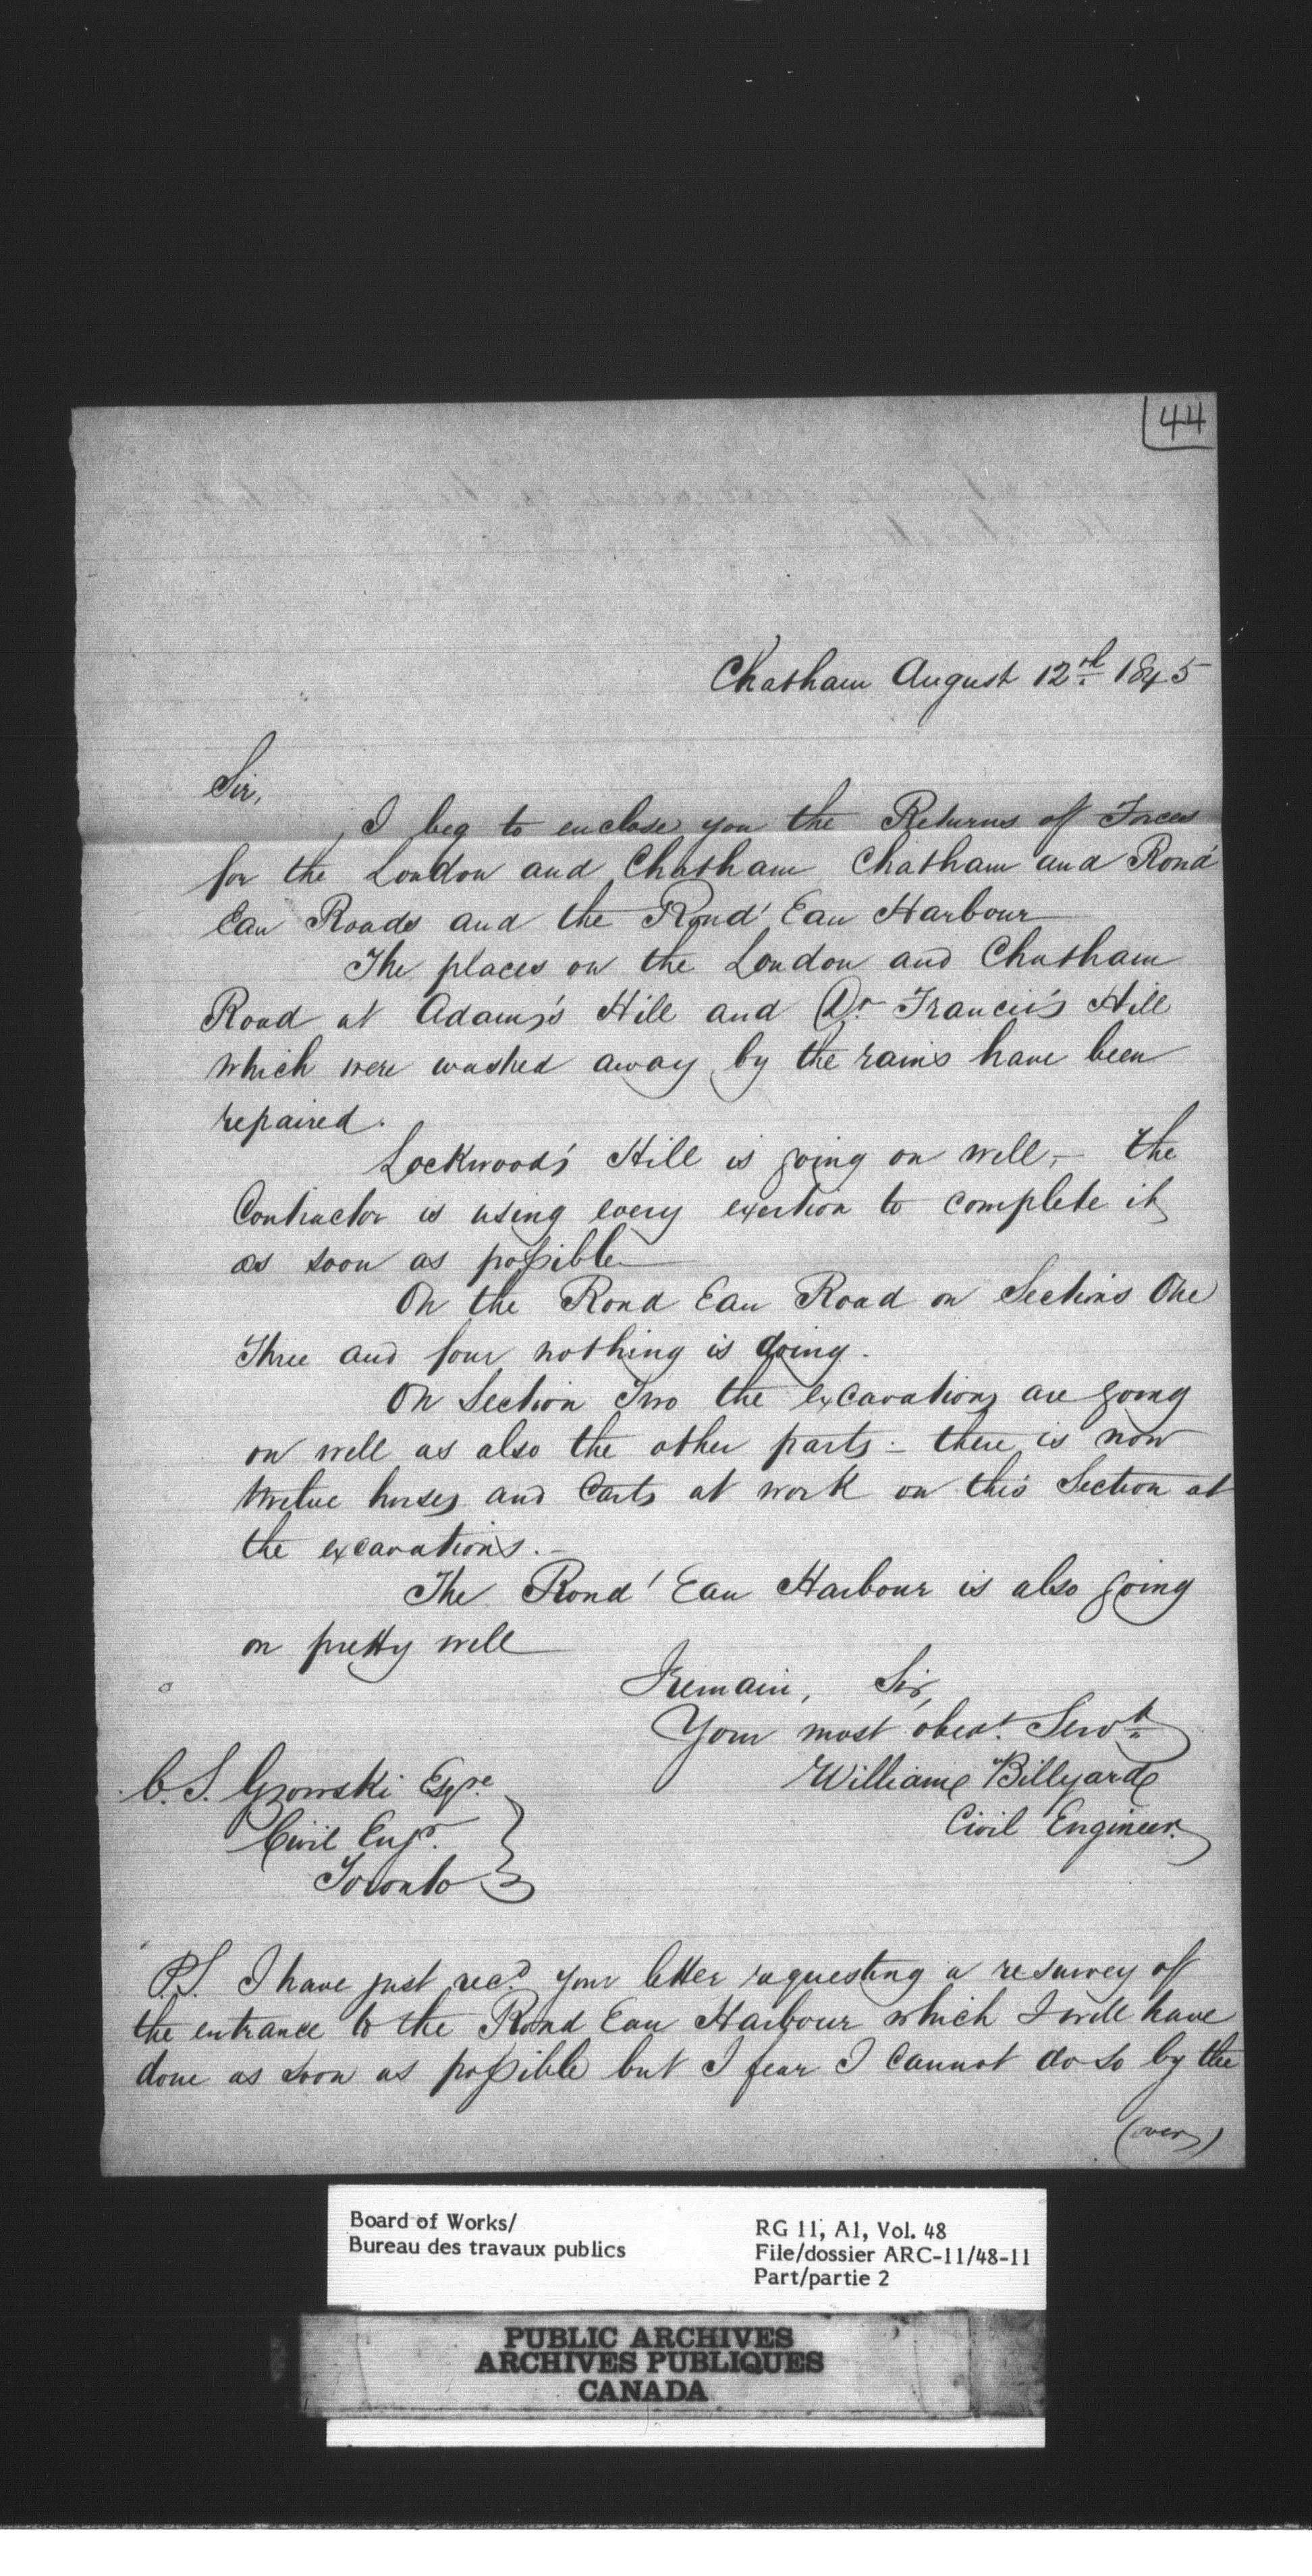 44
Chatham August 12th 1845
Sir,
I beg to enclose you the Returns of Forces
for the London and Chatham Chatham and Rond
Eau Roads and the Rond' Eau Harbour
The places on the London and Chatham
Road at Adams's Hill and Dr. Francis's Hill
which were washed away by the rains have been
repaired.
Lockwood's Hill is going on well, – the
Contractor is using every exertion to complete it
as soon as possible
On the Rond Eau Road on Sections One
Three and four nothing is doing.
On Section Two the excavations are going
on well as also the other parts – there is now
twelve horses and Carts at work on this Section at
the excavations. –
The Rond' Eau Harbour is also going
on pretty well
I remain, Sir,
Your most obedt. Servt.
William Billyard
Civil Engineer.
C. S. Gzowski Esqre.
Civil Engr.
Toronto
P.S. I have just recd. your letter requesting a resurvey of
the entrance to the Rond Eau Harbour which I will have
done as soon as possible but I fear I cannot do so by the
(over)
Board of Works/
Bureau des travaux publics
RG 11, A1, Vol. 48
File/dossier ARC-11/48-11
Part/partie 2
PUBLIC ARCHIVES
ARCHIVES PUBLIQUES
CANADA